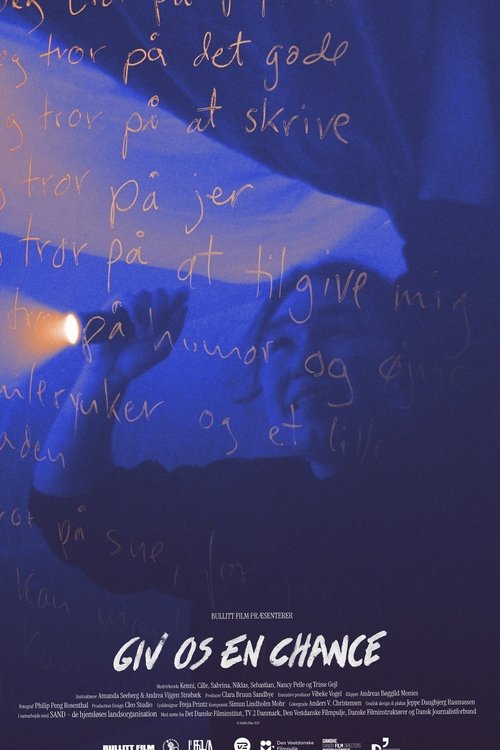 jeg tror på f
eg tror på det gode
g tror på at skrive
tror på jer
tror på at tilgive mig
på humor og øjne
og et lille
på sne, for
BULLITT FILM PRÆSENTERER
GIV OS EN CHANCE
Medvirkende Kenni, Cille, Sabrina, Niklas, Sebastian, Nancy Pelle og Trisse Gejl
Instruktører Amanda Seeberg & Andrea Vijgen Strøbæk Producer Clara Bruun Sandbye Executive producer Vibeke Vogel Klipper Andreas Bøggild Monies
Fotograf Philip Peng Rosenthal Production Design Cleo Studio Lyddesigner Freja Printz Komponist Simun Lindholm Mohr Colorgrade Anders V. Christensen Grafisk design & plakat Jeppe Daugbjerg Rasmussen
I samarbejde med SAND - de hjemløses landsorganisation Med støtte fra Det Danske Filminstitut, TV 2 Danmark, Den Vestdanske Filmpulje, Danske Filminstruktører og Dansk Journalistforbund
BULLITT FILM Den Vestdanske Filmpulje